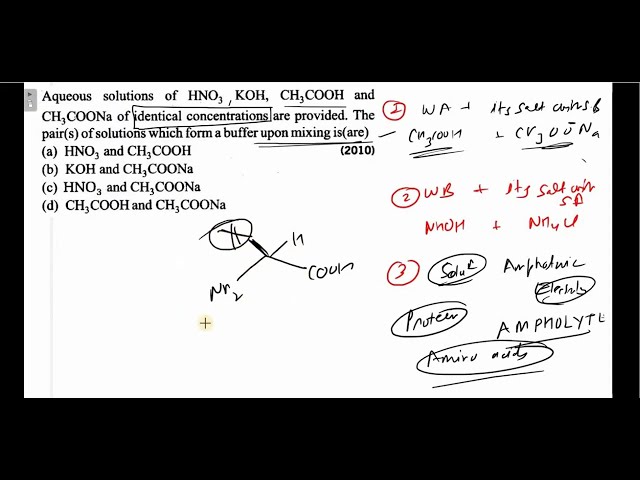 Aqueous solutions of HNO₃, KOH, CH₃COOH and
CH₃COONa of identical concentrations are provided. The
pair(s) of solutions which form a buffer upon mixing is(are)
(a) HNO₃ and CH₃COOH (2010)
(b) KOH and CH₃COONa
(c) HNO₃ and CH₃COONa
(d) CH₃COOH and CH₃COONa
H
COOH
NH₂
① WA + its salt with
CH₃COOH + CH₃COŌNa
② WB + its salt with
SA
NH₄Cl
③
Proteen
AMPHOLYTE
Amino acids